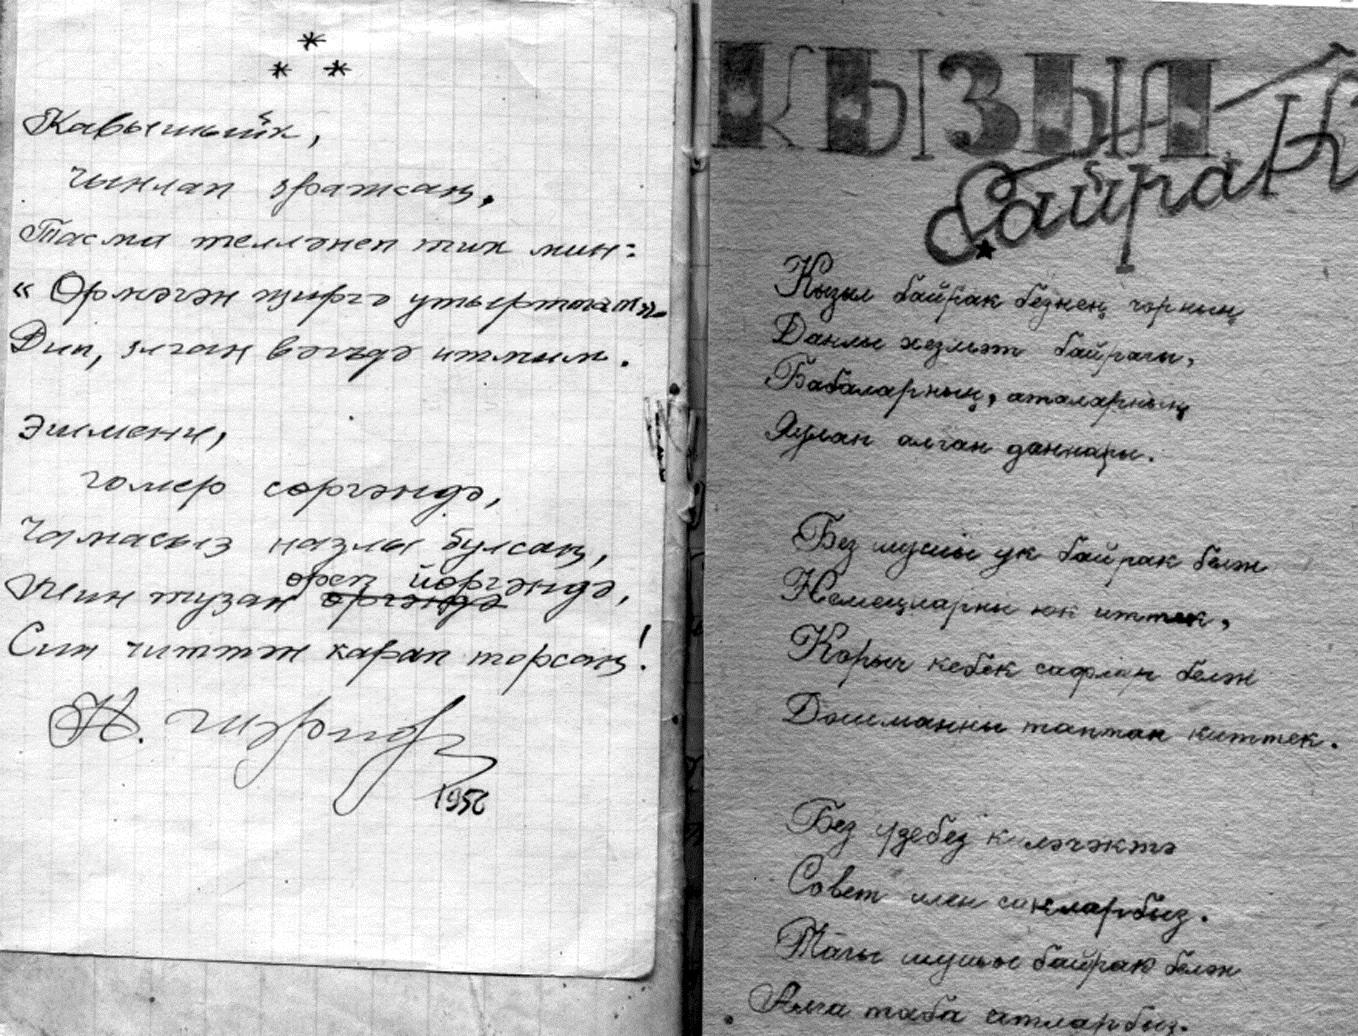 * * *
Кавышыйк,
чынлап яратсаң,
Тасма теллəнеп тик мин:
« Өрмəгəн җиргə утыртмат».
Дип, ялган вəгъдə итмим.
Эшмени,
гомер сөргəндə,
Чамасыз назлы булсаң,
Мин тузан өргəндə өреп йөргəндə,
Син читтəн карап торсаң!
1956
КЫЗЫЛ
байрак
Кызыл байрак безнең чорның
Данлы хезмəт байрагы,
Бабаларның, аталарның
Яулап алган даннары.
Без шушы ук байрак белəн
Немецларны юк иттек,
Корыч кебек сафлар белəн
Дошманны таптап киттек.
Без үзебез килəчəктə
Совет илен сакларбыз.
Тагы шушы байрак белəн
Алга таба атларбыз.